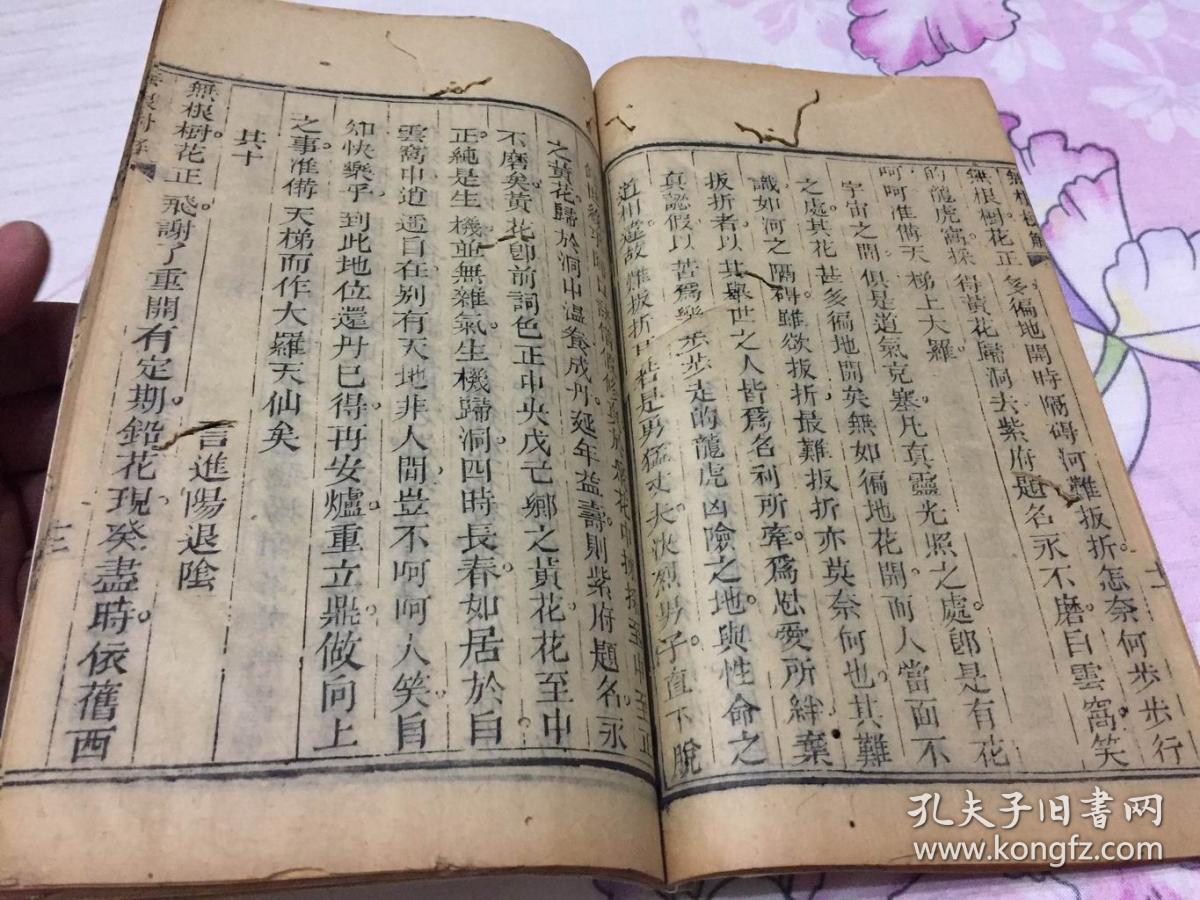 無根樹花正多徧地開時隔碍河難扳折怎奈何步步行
的龍虎窩採得黃花歸洞去紫府題名永不磨白雲窩笑
呵呵准俻天梯上大羅
宇宙之間俱是道氣充塞凡真靈光照之處卽是有花
之處其花甚多徧地開矣無如徧地花開而人當面不
識如河之隔碍雖欲扳折最難扳折亦莫奈何也其難
扳折者以其舉世之人皆爲名利所牽爲恩愛所絆棄
真認假以苦爲樂步步走的龍虎凶險之地與性命之
道相違故難扳折也若是勇猛丈夫決烈男子直下脫
至中至正
之黃花歸於洞中溫養成丹延年益壽則紫府題名永
不磨矣黃花卽前詞色正中央戊己鄉之黃花花至中
正純是生機並無雜氣生機歸洞四時長春如居於白
雲窩中逍遥自在別有天地非人間豈不呵呵人笑自
如快樂乎到此地位還丹已得再安爐重立鼎做向上
之事准俻天梯而作大羅天仙矣
其十
言進陽退陰
無根樹花正飛謝了重開有定期鉛花現癸盡時依舊西
孔夫子旧書网
www.kongfz.com